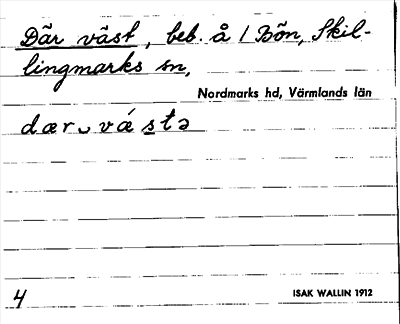 Där väst, beb. å 1 Bön, Skil-
lingmarks sn,
Nordmarks hd, Värmlands län
dær‿vǽstə
4
ISAK WALLIN 1912